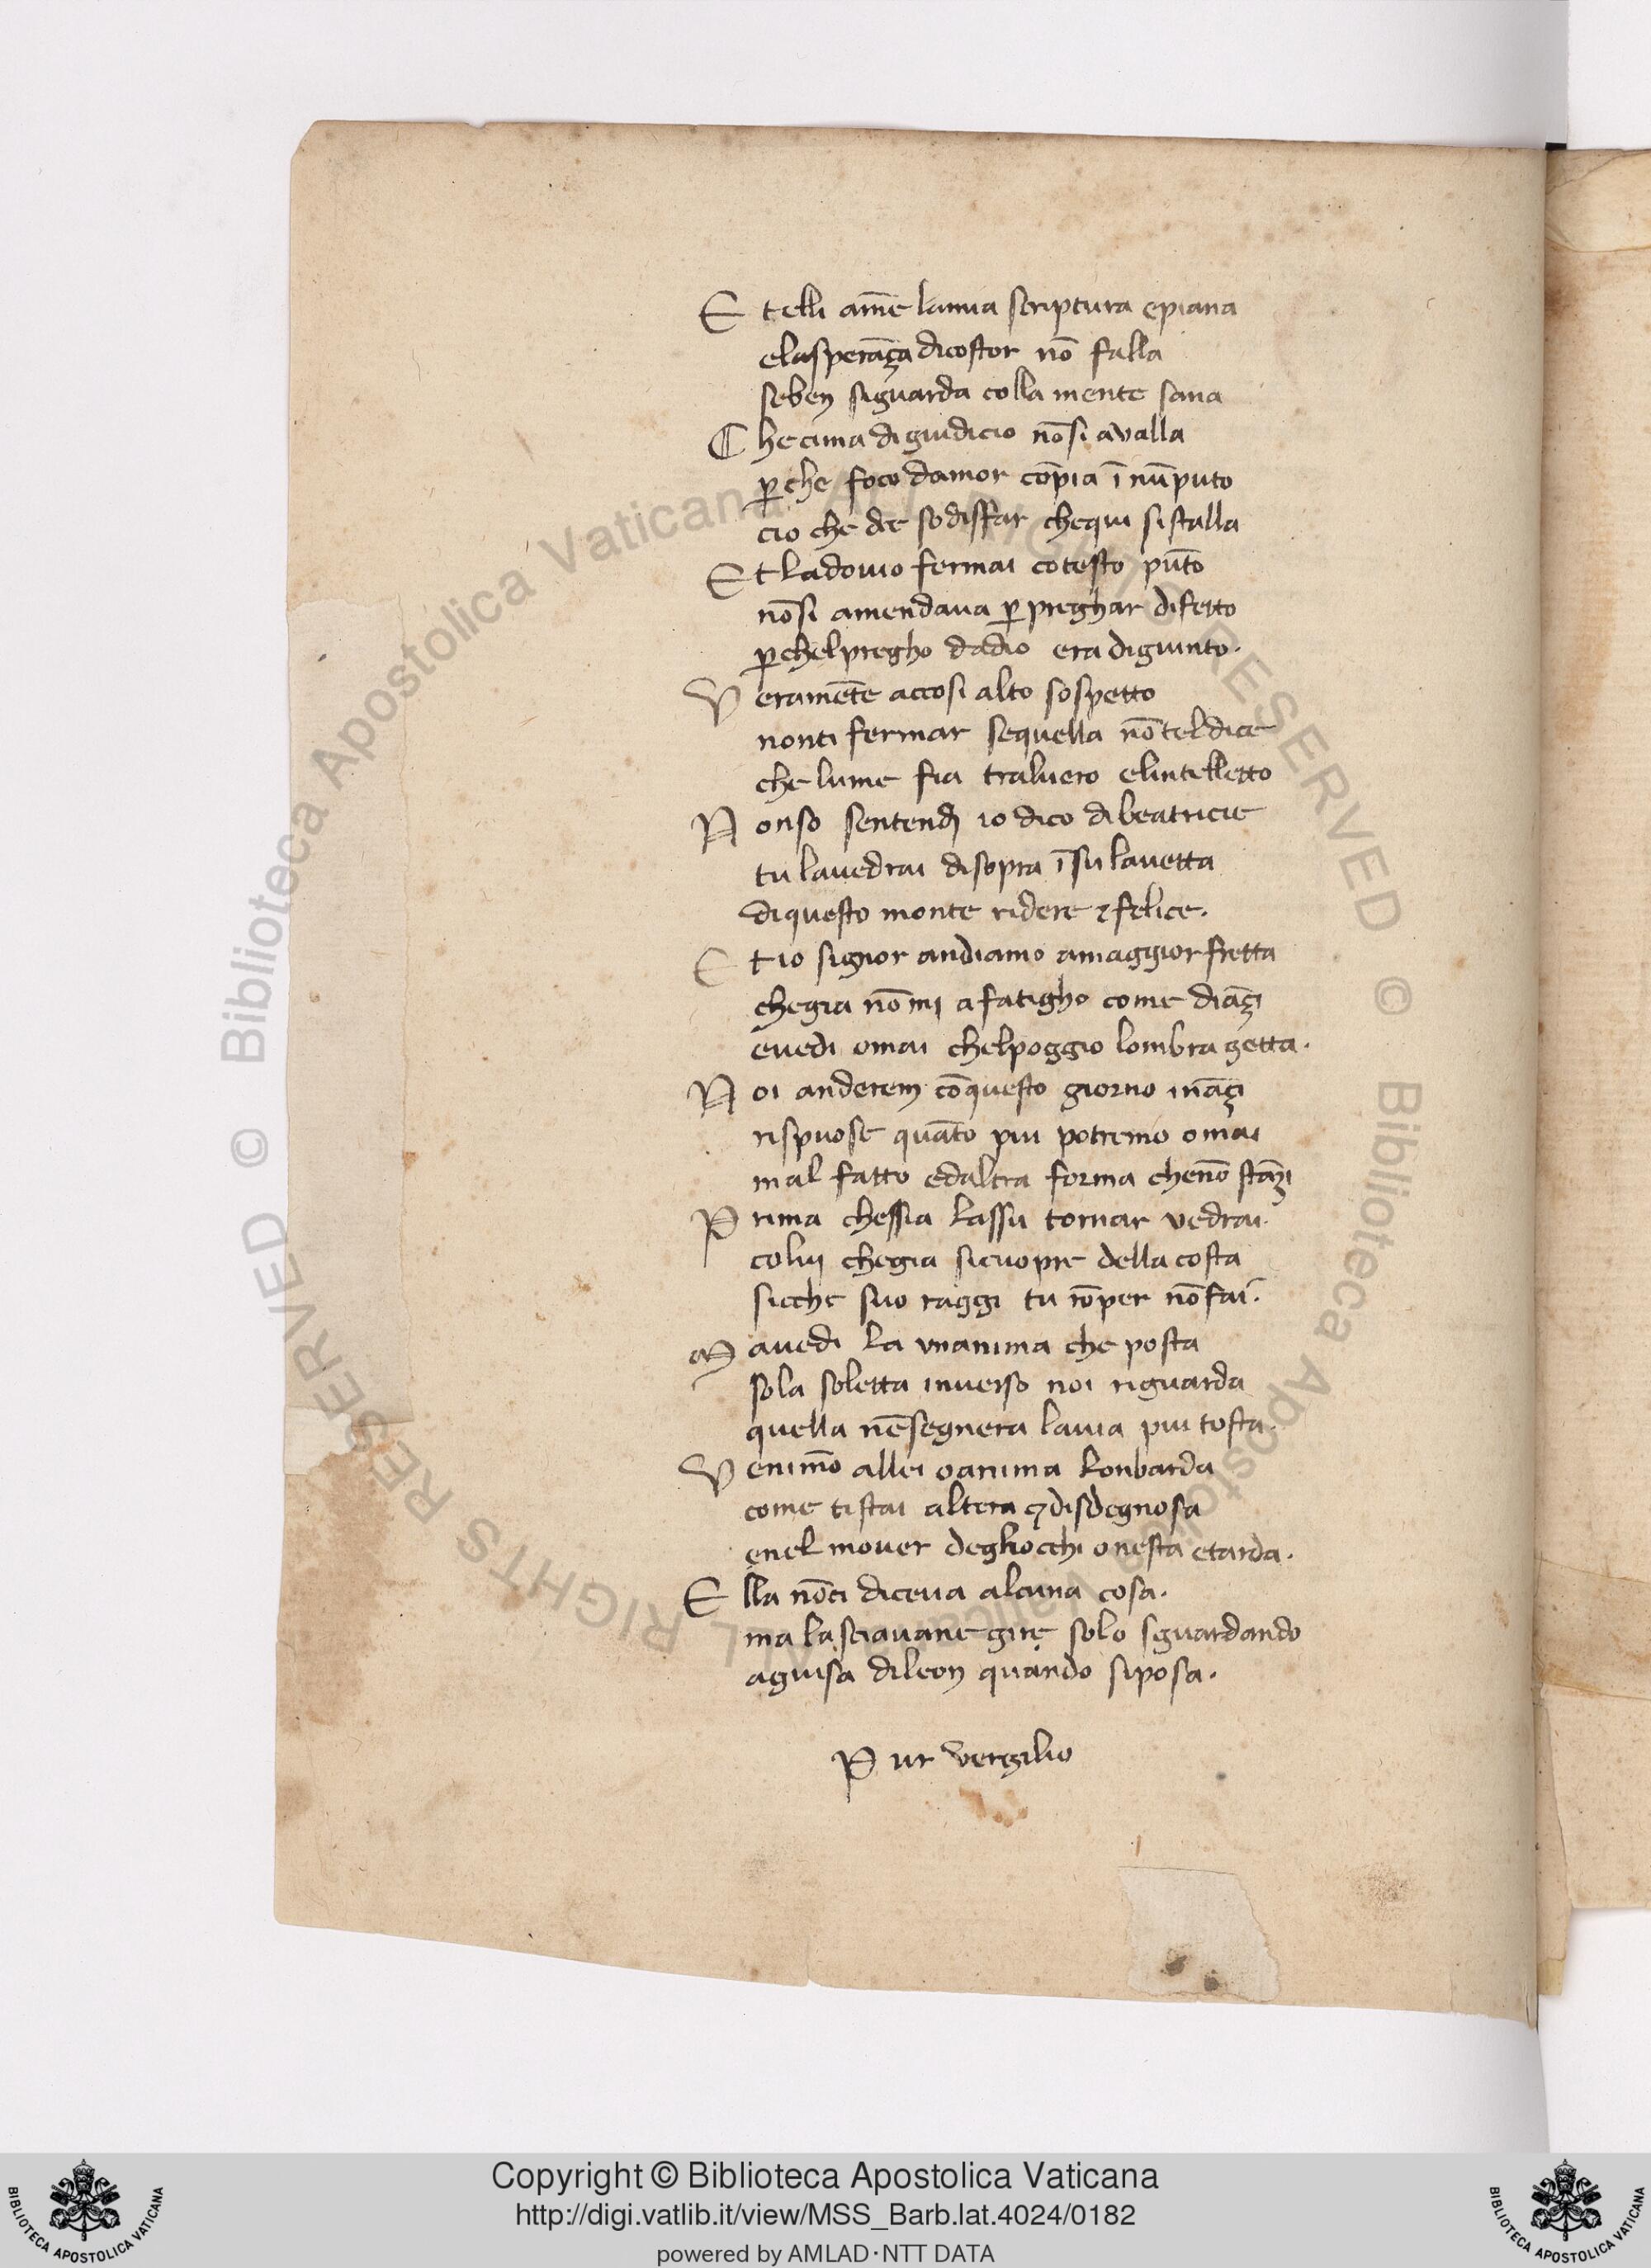 E t elli am̄e lamia scriptura epiana
elasperāça dicostor nō falla
seben siguarda colla mente sana
C he cima di giudicio nōsi avalla
ꝑche foco damor cōpia ī nūputo
cio che de sodisfar chequi sistalla
E t ladouio fermai cotesto pūto
nōsi amendaua ꝑ preghar difetto
ꝑchelpregho dadio era digiunto.
V eramēte accosi alto sospetto
nonti fermar sequella nō tel dice
che lume fia tralvero elintelletto
N onso sentendj io dico dibeatricie
tu lauedrai disopra ī su lauetta
diquesto monte ridere ⁊ felice.
E t io signor andiamo amaggior fretta
chegia nō mj afatigho come diāçi
euedi omai chelpoggio lombra getta.
N oi anderem cōquesto giorno ināçi
rispuose quāto piu potremo omai
mal fatto edaltra forma chenō stāzi
P rima chessia lassu tornar vedrai.
coluj chegia sicuopre della costa
sicche suo raggi tu rōper nō fai.
M auedi la vnanima che posta
sola soletta inuerso noi riguarda
quella nēsegnera lauia piu tosta.
V enimō allei oanima lonbarda
come ti stai altera ⁊ disdegnosa
enel mouer degliocchi onesta etarda.
E lla nōci diceua alcuna cosa.
ma lasciauane gire solo sguardando
aguisa dileon quando siposa.
P ur vergilio
© Biblioteca Apostolica Vaticana ALL RIGHTS RESERVED © Biblioteca Apostolica Vaticana ALL RIGHTS RESERVED
Copyright © Biblioteca Apostolica Vaticana
http://digi.vatlib.it/view/MSS_Barb.lat.4024/0182
powered by AMLAD·NTT DATA
BIBLIOTECA APOSTOLICA VATICANA
BIBLIOTECA APOSTOLICA VATICANA